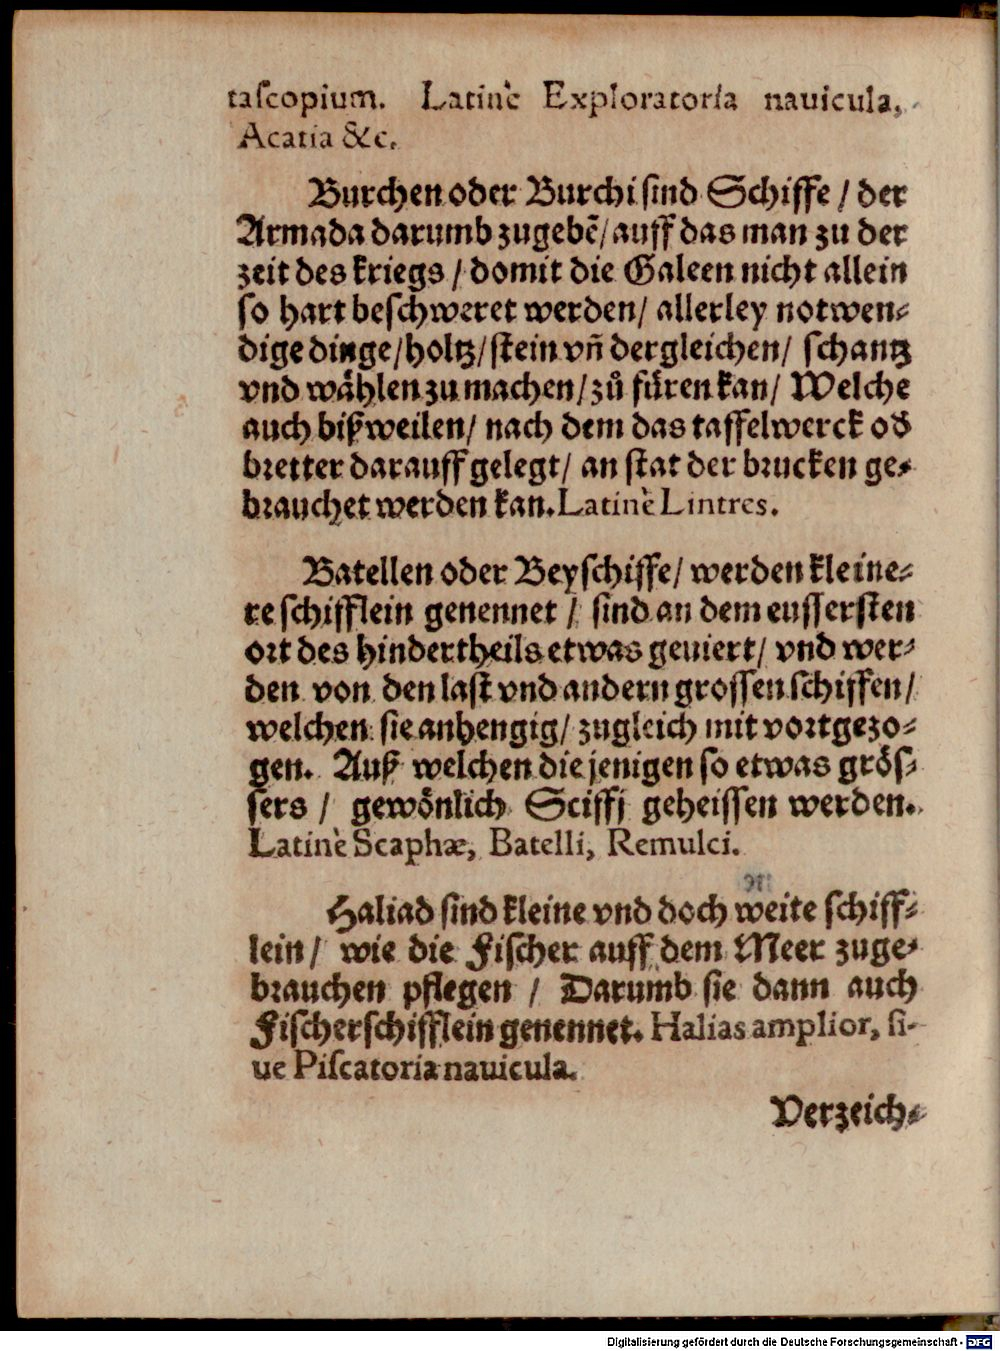 taſcopium. Latinè Exploratoria nauicula,
Acatia &c.
Burchen oder Burchi ſind Schiffe / der
Armada darumb zugebẽ/ auff das man zu der
zeit des kriegs / domit die Galeen nicht allein
ſo hart beſchweret werden/ allerley notwen-
dige dinge/holtz/ſtein vñ dergleichen/ ſchantz
vnd wählen zu machen/ zů füren kan/ Welche
auch bißweilen/ nach dem das taffelwerck oď
bretter darauff gelegt/ an ſtat der brucken ge-
brauchet werden kan. Latinè Lintres.
Batellen oder Beyſchiffe/ werden kleine-
re ſchifflein genennet / ſind an dem euſſerſten
ort des hindertheils etwas geuiert/ vnd wer-
den von den laſt vnd andern groſſen ſchiffen/
welchen ſie anhengig/ zugleich mit vortgezo-
gen. Auß welchen die jenigen ſo etwas gröſ-
ſers / gewönlich Sciffj geheiſſen werden.
Latinè Scaphæ, Batelli, Remulci.
Haliad ſind kleine vnd doch weite ſchiff-
lein/ wie die Fiſcher auff dem Meer zuge-
brauchen pflegen / Darumb ſie dann auch
Fiſcherſchifflein genennet. Halias amplior, ſi-
ue Piſcatoria nauicula.
Verzeich-
Digitalisierung gefördert durch die Deutsche Forschungsgemeinschaft - DFG